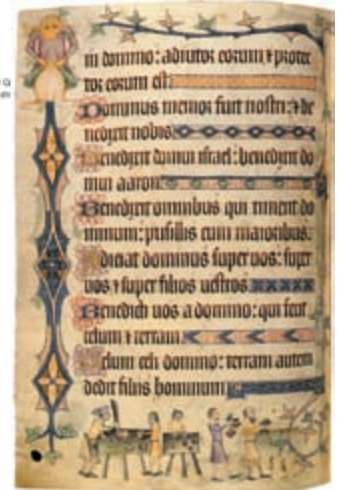 in domino: adiutor eorum ⁊ protec
tor eorum est.
Dominus memor fuit nostri: ⁊ be
nedixit nobis.
Benedixit domui israel: benedixit do
mui aaron.
Benedixit omnibus qui timent do
minum: pusillis cum maioribus.
Adiciat dominus super uos: super
uos ⁊ super filios uestros.
Benedicti uos a domino: qui fecit
celum ⁊ terram.
Celum celi domino: terram autem
dedit filiis hominum